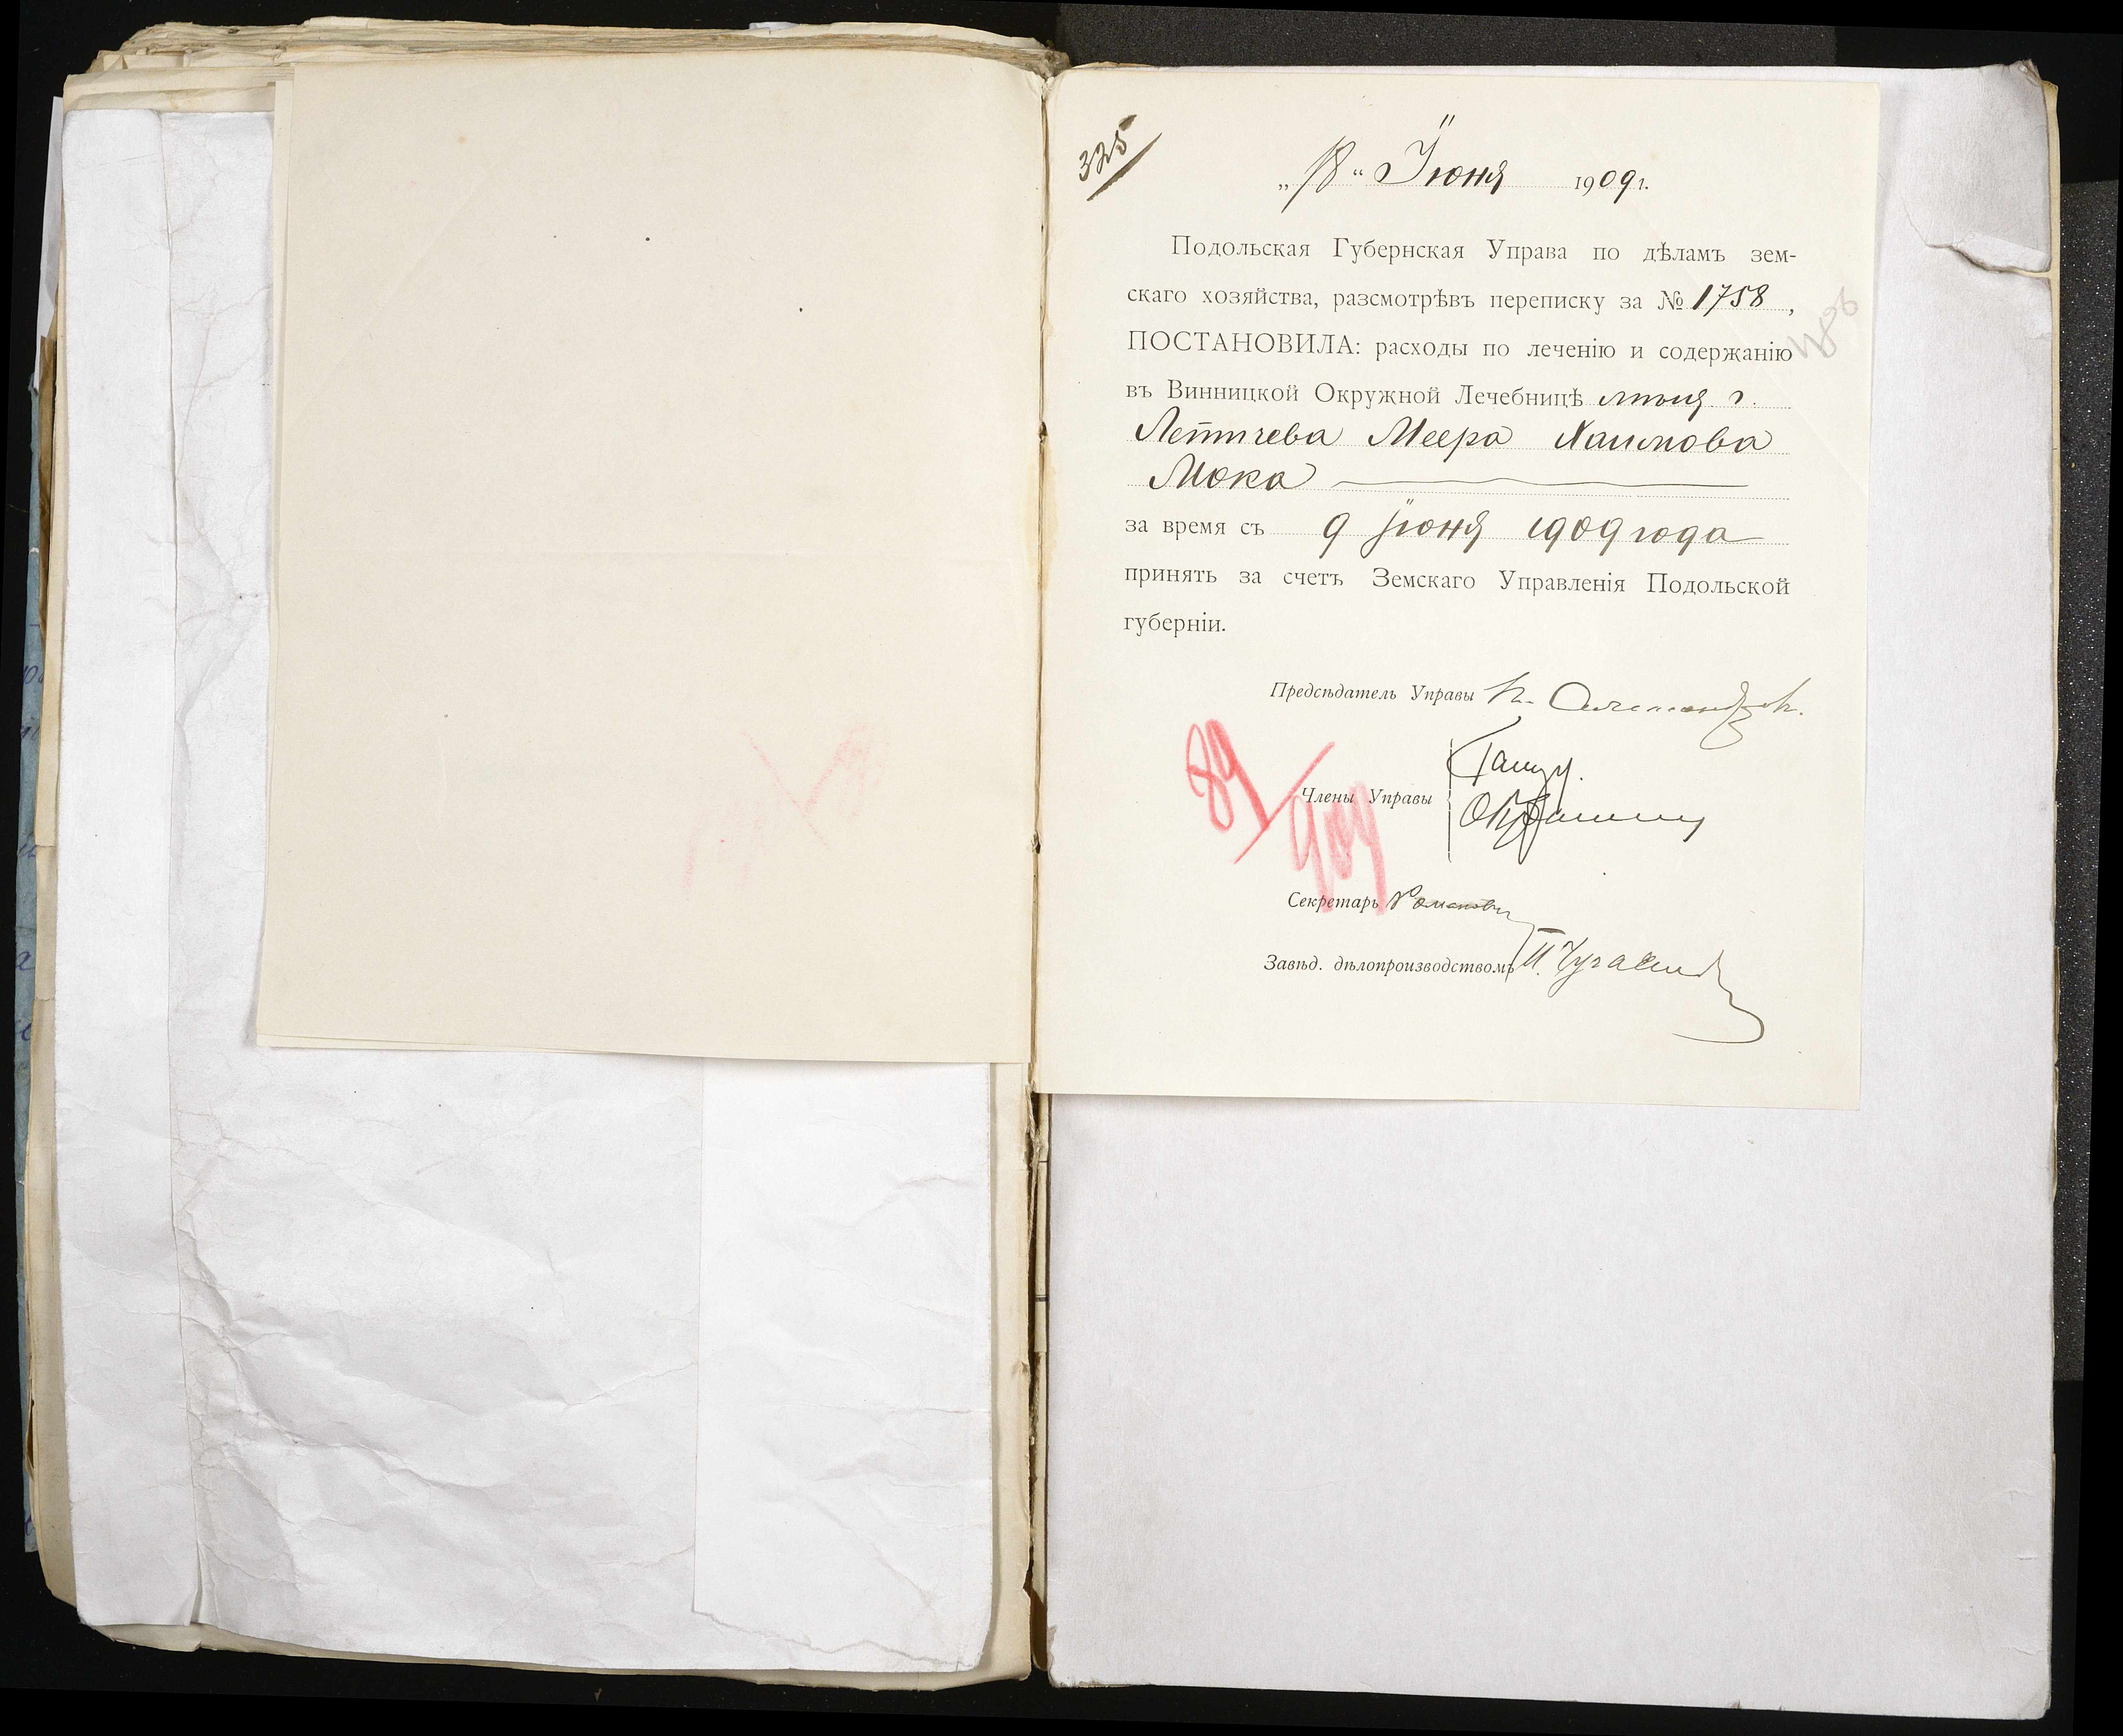 325
„18“ Іюня 1909 г.
Подольская Губернская Управа по дѣламъ зем-
скаго хозяйства, разсмотрѣвъ переписку за № 1758,
ПОСТАНОВИЛА: расходы по леченію и содержанію
въ Винницкой Окружной Лечебницѣ мѣщ. г.
Летичева Меера Хаимова
Мока
за время съ 9 Іюня 1909 года
принять за счетъ Земскаго Управленія Подольской
губерніи.
Предсѣдатель Управы
89/909
Члены Управы
Секретарь Романович
Завѣд. дѣлопроизводствомъ